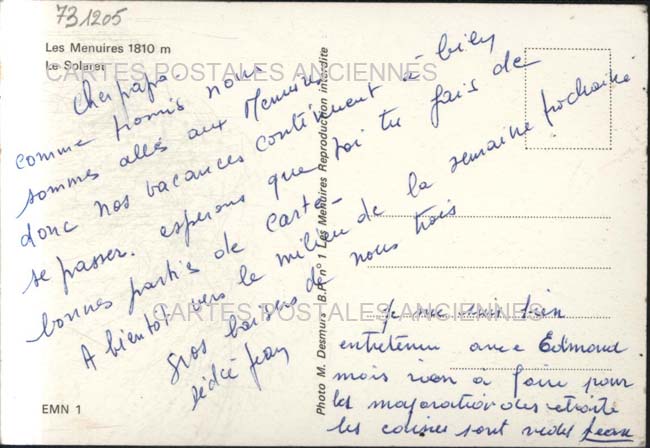 731205
Les Menuires 1810 m
Le Solaret
CARTES POSTALES ANCIENNES
Cher papa.
comme promis nous
sommes allés aux Menuires
donc nos vacances continuent à bien
se passer. esperons que toi tu fais de
bonnes parties de carte
A bientôt vers le milieu de la semaine prochaine
Gros baisers de nous trois
jean
EMN 1
Photo M. Desmurs B.P. n° 1 Les Menuires Reproduction interdite
CARTES POSTALES ANCIENNES
je me suis bien
entretenu avec Edmond
mais rien à faire pour
la majoration des retraite
les caisses sont vides Jean